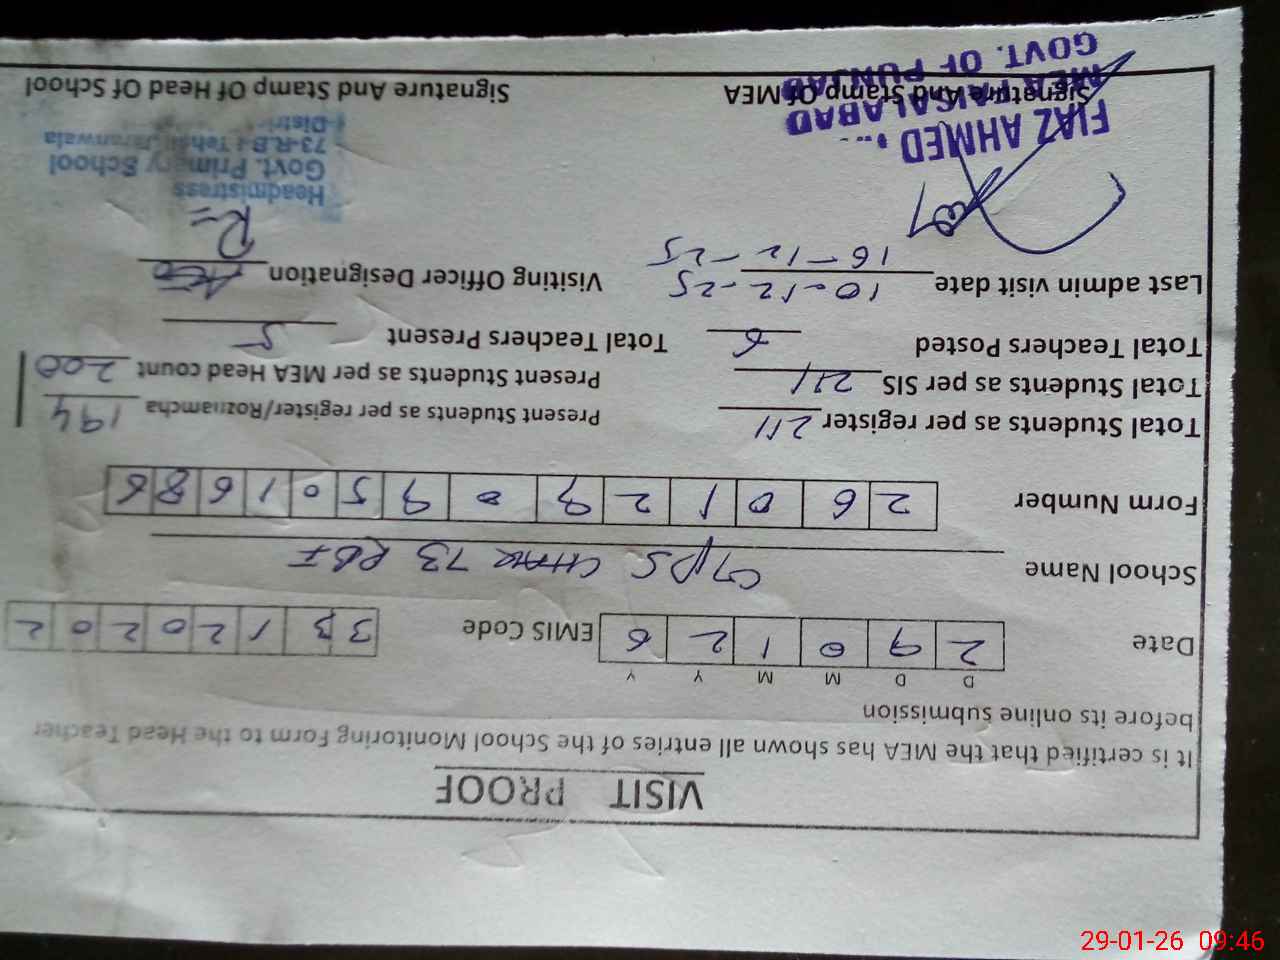 VISIT PROOF
It is certified that the MEA has shown all entries of the School Monitoring Form to the Head Teacher
before its online submission
D D M M Y Y
Date 2 9 0 1 2 6 EMIS Code 3 3 1 2 0 2 0 2
School Name GPS CHAK 73 RB I
Form Number 2 6 0 1 2 9 0 9 5 0 1 6 8 6
Total Students as per register 211 Present Students as per register/Roznamcha 194
Total Students as per SIS 211 Present Students as per MEA Head count 200
Total Teachers Posted 6 Total Teachers Present 5
Last admin visit date 10-12-25 Visiting Officer Designation AEO
16-12-25
Headmistress
Govt. Primary School
73-R.B-I Teh: Jaranwala
Distri
FIAZ AHMED
MEA FAISALABAD
GOVT. OF PUNJAB
Signature And Stamp Of MEA Signature And Stamp Of Head Of School
29-01-26 09:46